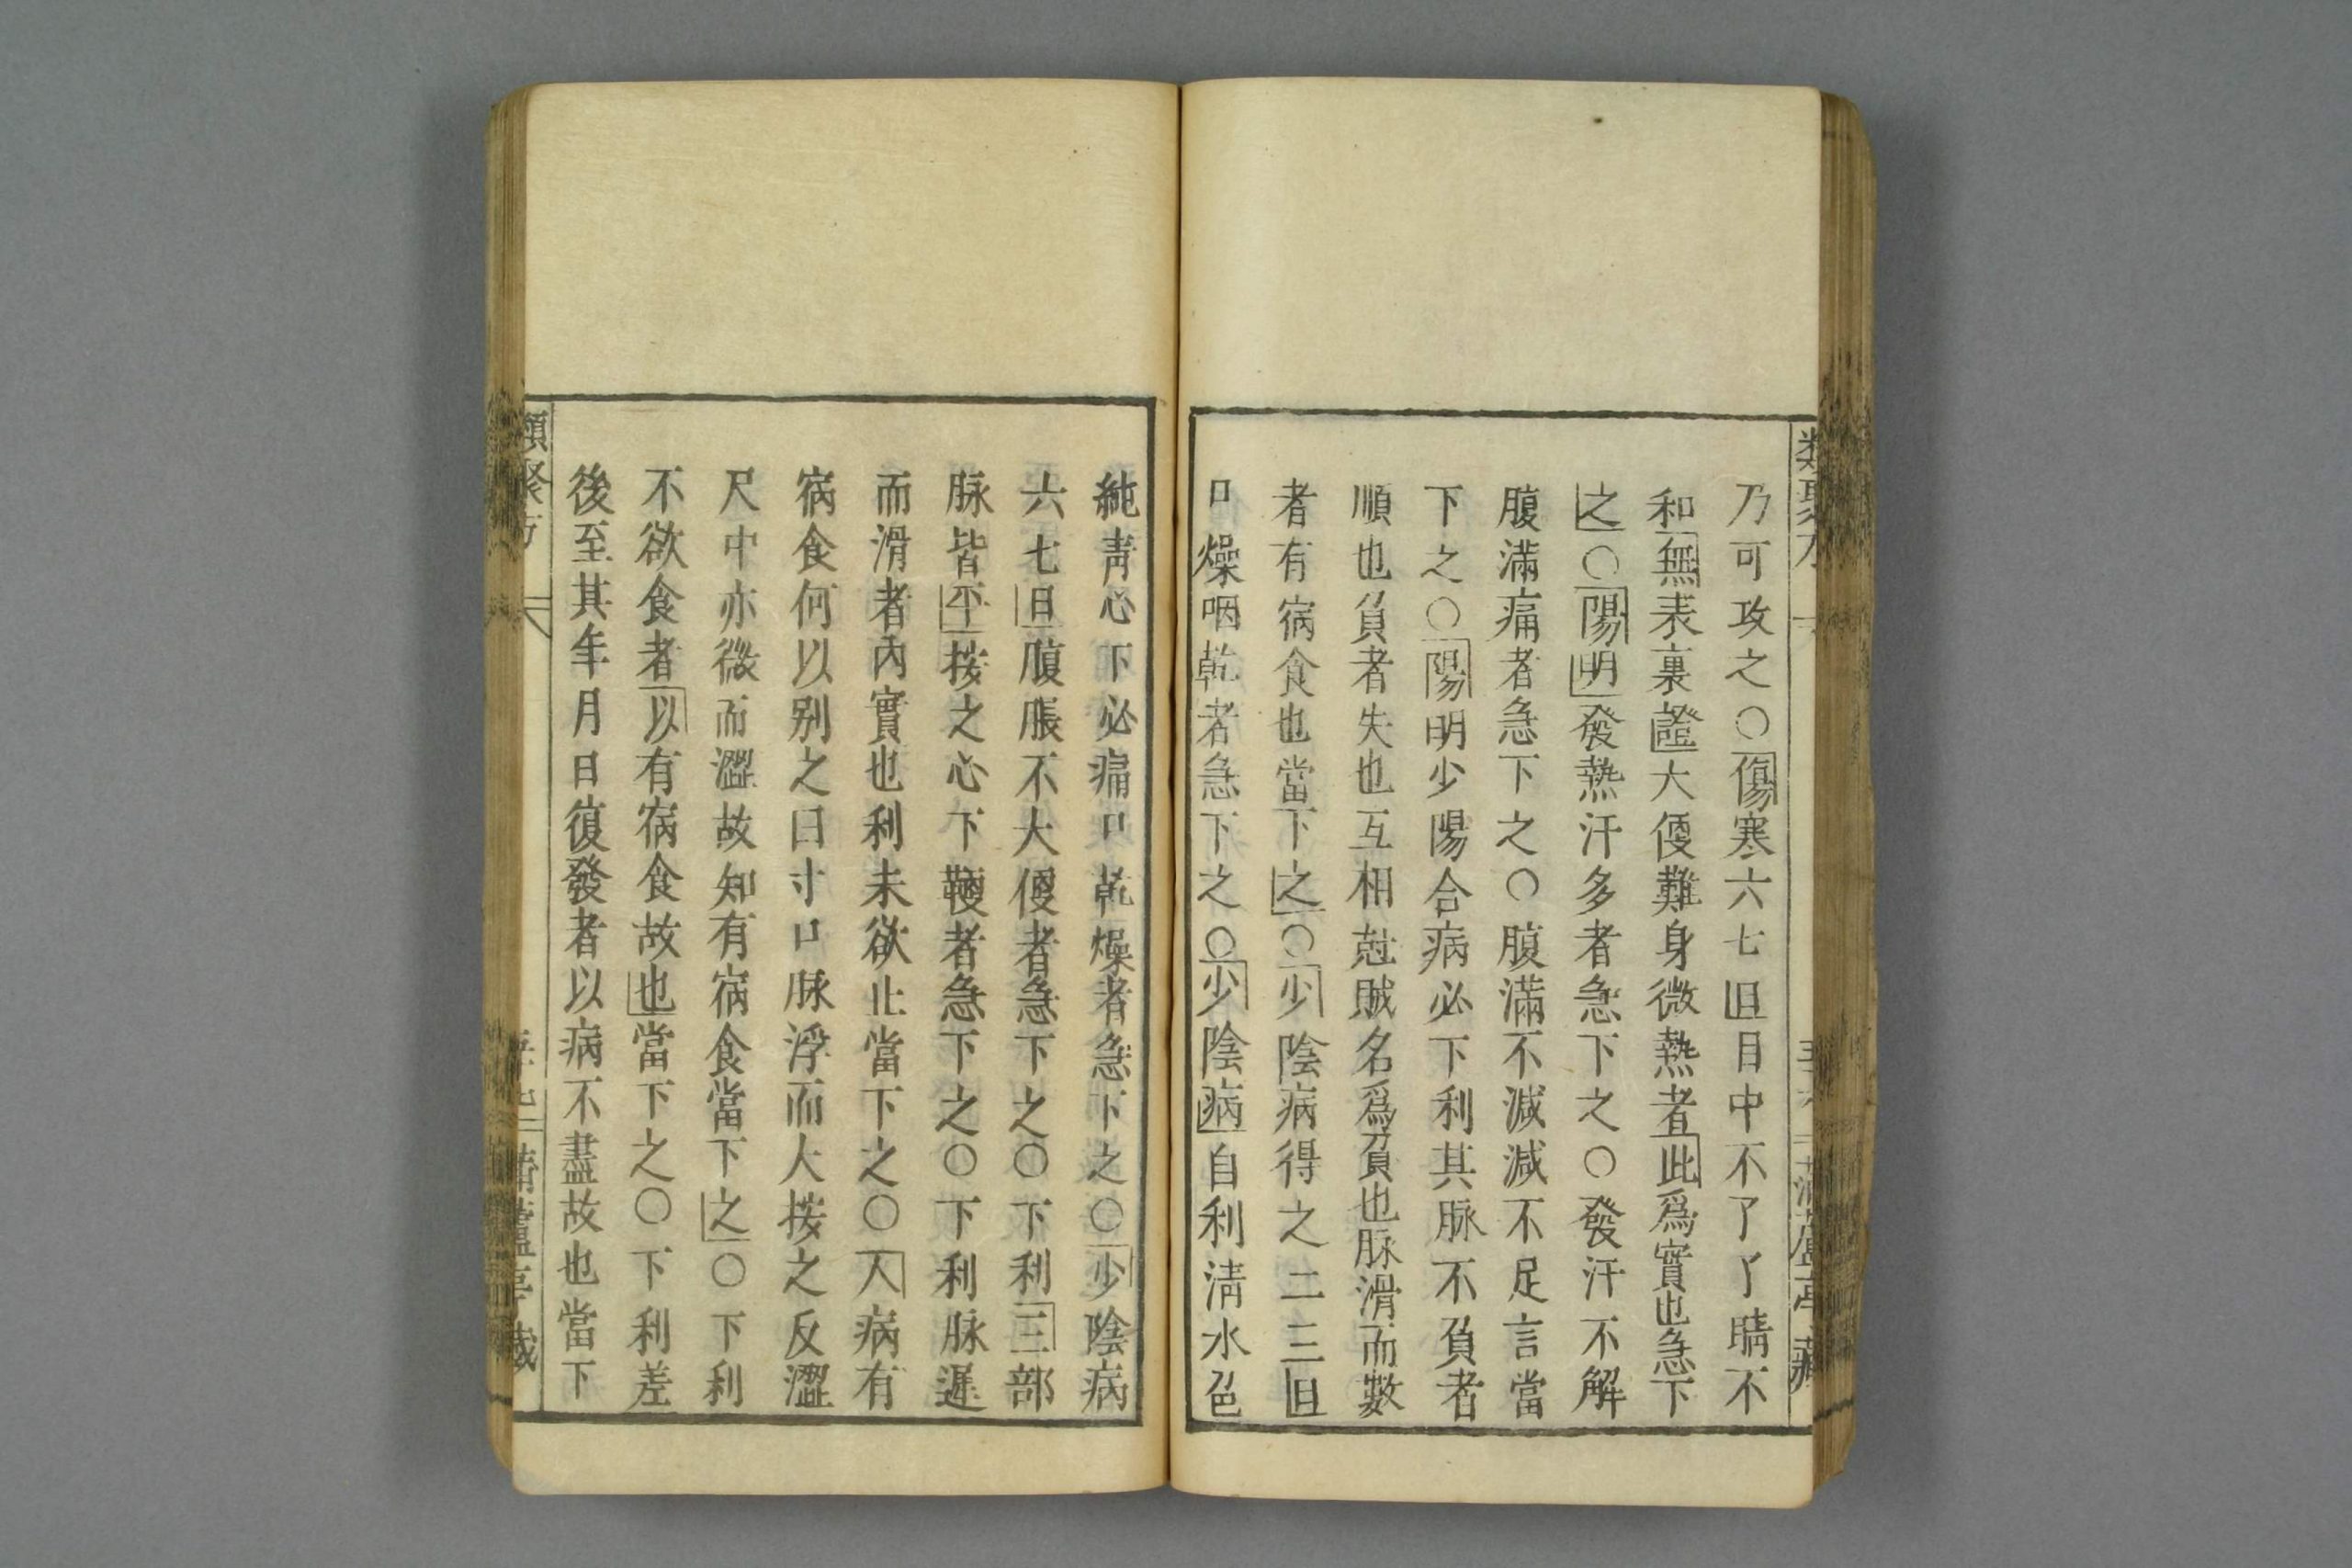 乃可攻之〇傷寒六七日目中不了了睛不
和無表裏證大便難身微熱者此爲實也急下
之〇陽明發熱汗多者急下之〇發汗不解
腹滿痛者急下之〇腹滿不減減不足言當
下之〇陽明少陽合病必下利其脉不負者
順也負者失也互相尅賊名爲負也脉滑而數
者有宿食也當下之〇少陰病得之二三日
口燥咽乾者急下之〇少陰病自利淸水色
純靑心下必痛口乾燥者急下之〇少陰病
六七日腹脹不大便者急下之〇下利三部
脉皆平按之心下鞕者急下之〇下利脉遲
而滑者內實也利未欲止當下之〇人病有
宿食何以別之曰寸口脉浮而大按之反澀
尺中亦微而澀故知有宿食當下之〇下利
不欲食者以有宿食故也當下之〇下利差
後至其年月日復發者以病不盡故也當下
類聚方